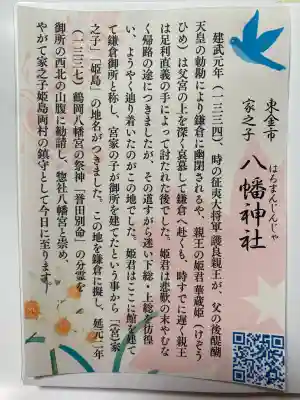 東金市
家之子
八幡神社
はちまんじんじゃ
建武元年(一三三四)、時の征夷大将軍 護良親王が、父の後醍醐
天皇の勅勘により鎌倉に幽閉されるや、親王の姫君華蔵姫(けぞう
ひめ)は父宮の上を深く哀慕して鎌倉へ赴くも、時すでに遅く親王
は足利直義の手によって討たれた後でした。姫君は悲歎の末やむな
く帰路の途につきましたが、その道すがら迷い下総・上総を彷徨
い、ようやく辿り着いたのがこの地でした。姫君はここに館を建て
て鎌倉御所と称し、宮家の子が御所を建てたという事から「(宮)家
之子」「姫島」の地名がつきました。この地を鎌倉に擬し、延元二年
(一三三七)鶴岡八幡宮の祭神「誉田別命」の分霊を
御所の西北の山腹に勧請し、惣社八幡宮と崇め、
やがて家之子姫島両村の鎮守として今日に至ります。